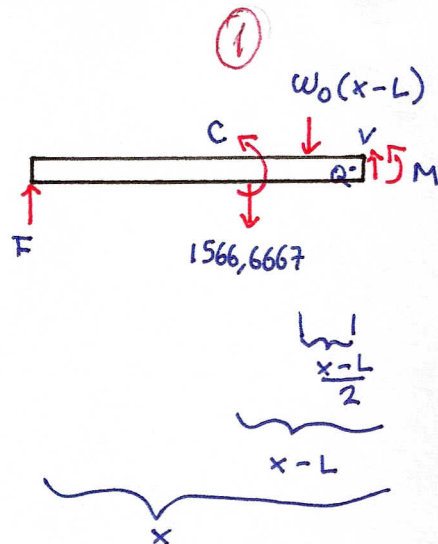 1
ω₀(x-L)
C
V
Q
M
F
1566,6667
x-L
2
x-L
x